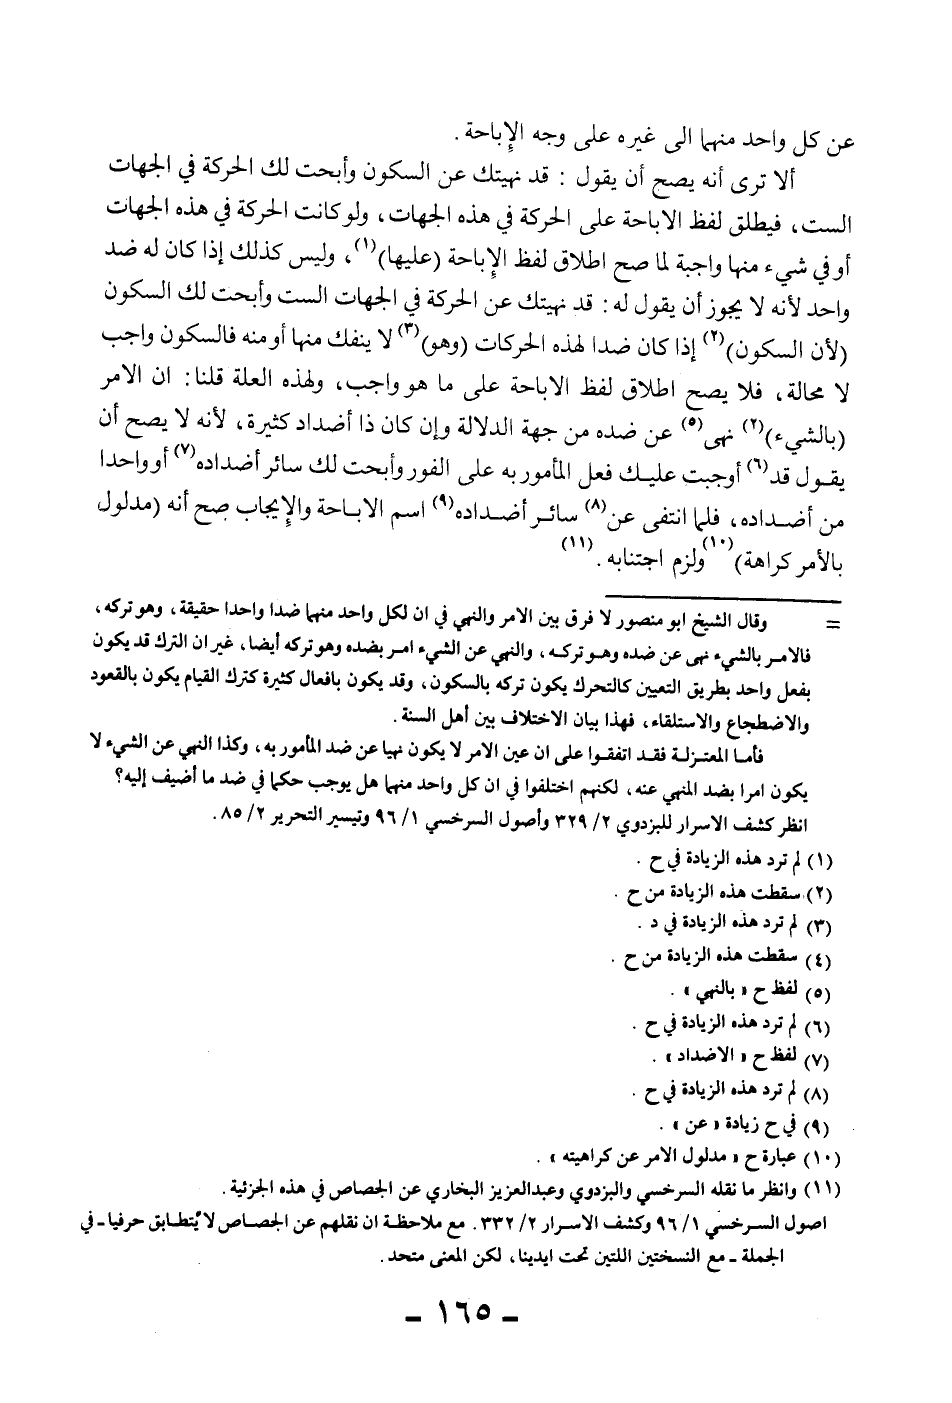 عن كل واحد منهما الى غيره على وجه الإباحة .
ألا ترى أنه يصح أن يقول : قد نهيتك عن السكون وأبحت لك الحركة في الجهات
الست، فيطلق لفظ الاباحة على الحركة في هذه الجهات، ولو كانت الحركة في هذه الجهات
أو في شيء منها واجبة لما صح اطلاق لفظ الإباحة (عليها)(١)، وليس كذلك إذا كان له ضد
واحد لأنه لا يجوز أن يقول له : قد نهيتك عن الحركة في الجهات الست وأبحت لك السكون
(لأن السكون)(٢) إذا كان ضدا لهذه الحركات (وهو)(٣) لا ينفك منها أو منه فالسكون واجب
لا محالة، فلا يصح اطلاق لفظ الاباحة على ما هو واجب، ولهذه العلة قلنا : ان الامر
(بالشيء)(٢) نهى(٥) عن ضده من جهة الدلالة وإن كان ذا أضداد كثيرة، لأنه لا يصح أن
يقول قد(٦) أوجبت عليك فعل المأمور به على الفور وأبحت لك سائر أضداده(٧) أو واحدا
من أضداده، فلما انتفى عن(٨) سائر أضداده(٩) اسم الاباحة والإيجاب صح أنه (مدلول
بالأمر كراهة)(١٠) ولزم اجتنابه .(١١)
= وقال الشيخ ابو منصور لا فرق بين الامر والنهي في ان لكل واحد منهما ضدا واحدا حقيقة، وهو تركه،
فالامر بالشيء نهى عن ضده وهو تركه، والنهي عن الشيء امر بضده وهو تركه أيضا، غير ان الترك قد يكون
بفعل واحد بطريق التعيين كالتحرك يكون تركه بالسكون، وقد يكون بافعال كثيرة كترك القيام يكون بالقعود
والاضطجاع والاستلقاء، فهذا بيان الاختلاف بين أهل السنة .
فأما المعتزلة فقد اتفقوا على ان عين الامر لا يكون نهيا عن ضد المأمور به، وكذا النهي عن الشيء لا
يكون امرا بضد المنهي عنه، لكنهم اختلفوا في ان كل واحد منهما هل يوجب حكما في ضد ما أضيف إليه؟
انظر كشف الاسرار للبزدوي ٢/ ٣٢٩ وأصول السرخسي ١/ ٩٦ وتيسير التحرير ٢/ ٨٥.
(١) لم ترد هذه الزيادة في ح .
(٢) سقطت هذه الزيادة من ح .
(٣) لم ترد هذه الزيادة في د .
(٤) سقطت هذه الزيادة من ح .
(٥) لفظ ح « بالنهي » .
(٦) لم ترد هذه الزيادة في ح .
(٧) لفظ ح « الاضداد » .
(٨) لم ترد هذه الزيادة في ح .
(٩) في ح زيادة « عن » .
(١٠) عبارة ح « مدلول الامر عن كراهيته » .
(١١) وانظر ما نقله السرخسي والبزدوي وعبدالعزيز البخاري عن الجصاص في هذه الجزئية .
اصول السرخسي ١/ ٩٦ وكشف الاسرار ٢/ ٣٣٢. مع ملاحظة ان نقلهم عن الجصاص لا يُتطابق حرفيا - في
الجملة - مع النسختين اللتين تحت ايدينا، لكن المعنى متحد .
- ١٦٥ -